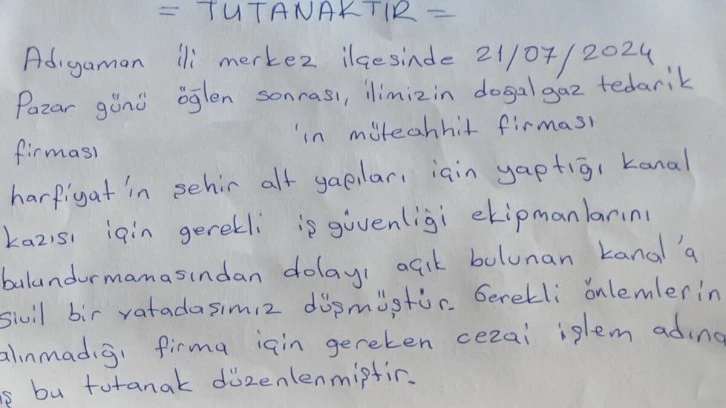 = TUTANAKTIR =
Adıyaman ili merkez ilçesinde 21/07/2024
Pazar günü öğlen sonrası, ilimizin doğal gaz tedarik
firması 'ın müteahhit firması
harfiyat'ın şehir alt yapıları için yaptığı kanal
kazısı için gerekli iş güvenliği ekipmanlarını
bulundurmamasından dolayı açık bulunan kanal'a
sivil bir vatadaşımız düşmüştür. Gerekli önlemlerin
alınmadığı firma için gereken cezai işlem adına
iş bu tutanak düzenlenmiştir.